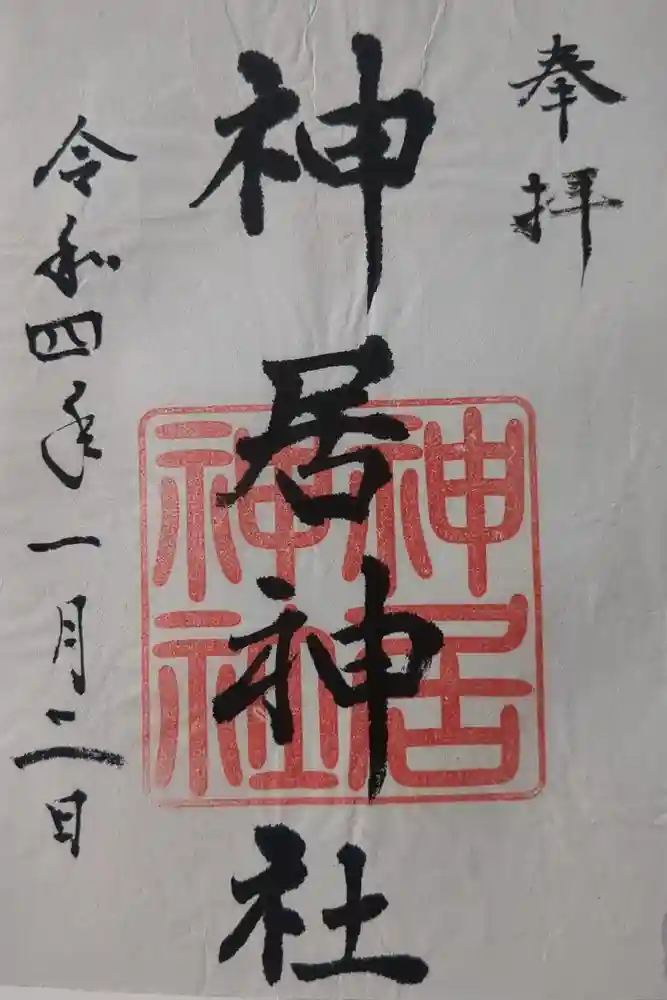 奉拝
神居神社
神居
神社
令和四年一月二日